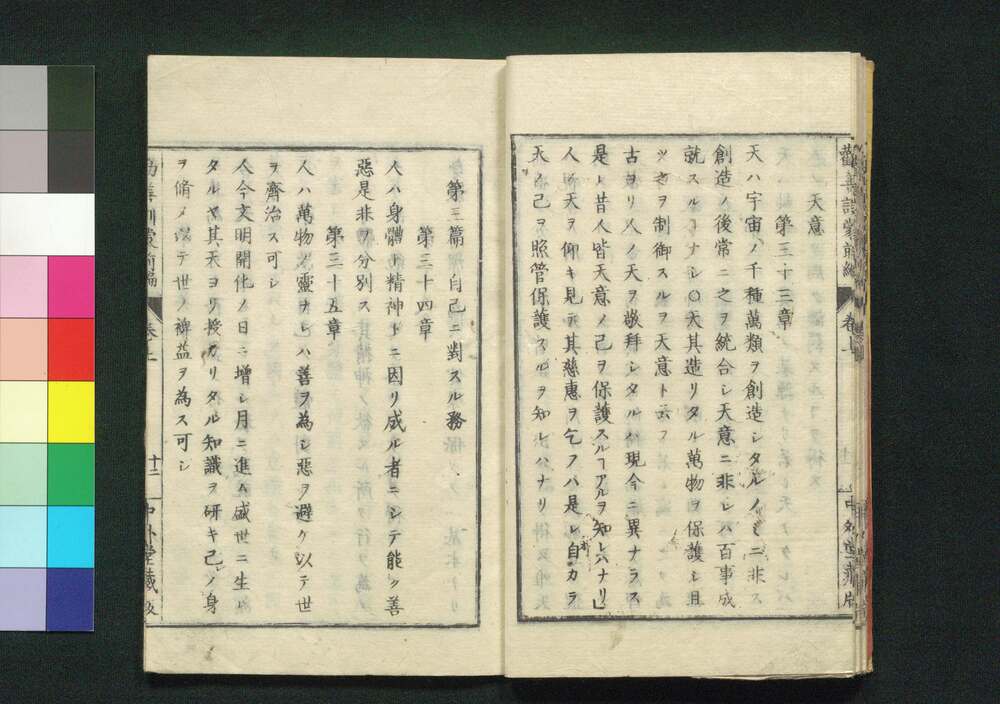 天意
第三十三章
天ハ宇宙ノ千種萬類ヲ創造シタルノミニ非ス
創造ノ後常ニ之ヲ統合シ天意ニ非レハ百事成
就スルヿナシ〇天其造リタル萬物ヲ保護シ且
ツ之ヲ制御スルヲ天意ト云フ
古ヨリ人ノ天ヲ敬拜シタルハ現今ニ異ナラス
是レ昔人皆天意ノ己ヲ保護スルヿアルヲ知レハナリ」
人ノ天ヲ仰キ見テ其慈惠ヲ乞フハ是レ自カラ
天ノ己ヲ照管保護スルヲ知レハナリ
勸善訓蒙前編 卷上 中外堂藏版
第三篇 自己ニ對スル務
第三十四章
人ハ身體ト精神トニ因リ成ル者ニシテ能ク善
惡是非ヲ分別ス
第三十五章
人ハ萬物ノ靈ナレハ善ヲ為シ惡ヲ避ケ以テ世
ヲ齊治ス可シ
人今文明開化ノ日ニ增シ月ニ進ム盛世ニ生レ
タルヤ其天ヨリ授カリタル知識ヲ研キ己ノ身
ヲ脩メ テ世ノ裨益ヲ為ス可シ
勸善訓蒙前編 卷上 十二 中外堂藏版